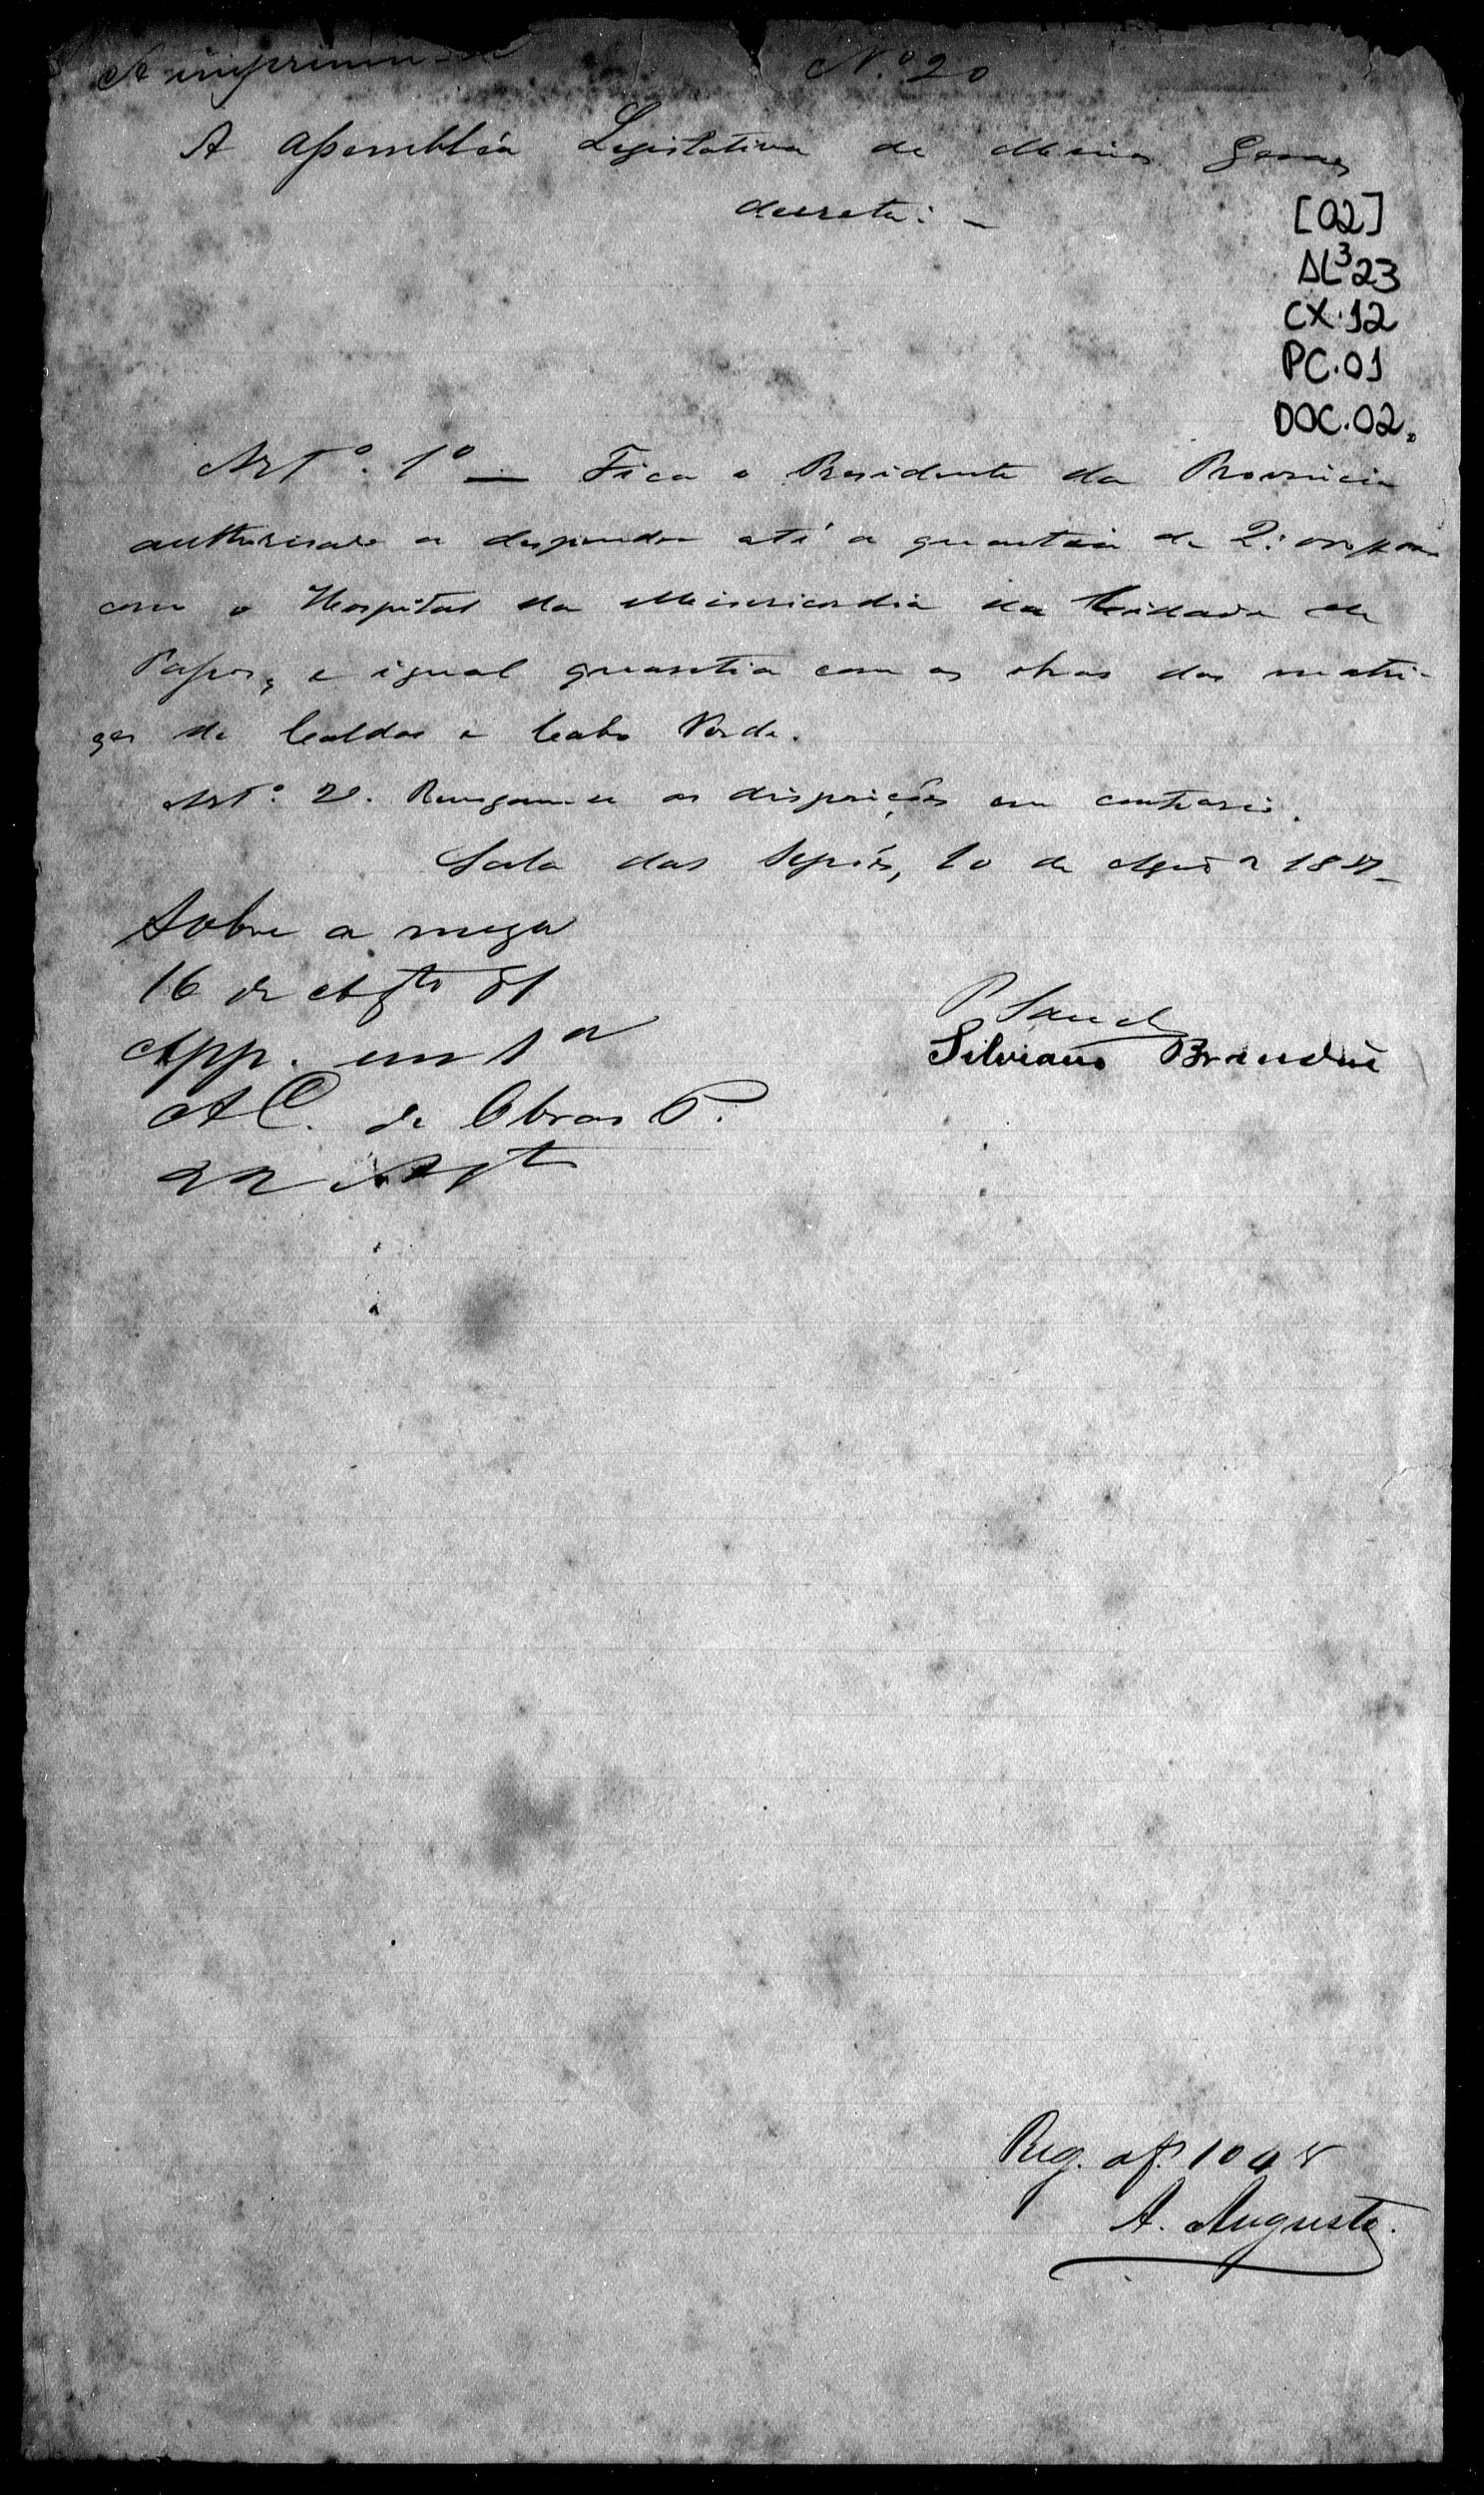 A imprimir
N.º 20
A Assembléa Legislativa de Minas Geraes
decreta: —
[02]
AL³23
CX.12
PC.01
DOC.02.
Art.º 1º — Fica o Presidente da Provincia
authorisado a despender até a quantia de 2:000$000
com o Hospital da Misericordia da Cidade de
Passos, e igual quantia com as obras das matri-
zes de Caldas e Cabo Verde.
Art.º 2º. Revogam-se as disposições em contrario.
Sala das Sessões, 10 de Agosto
Sobre a meza
16 de Agto 81
App. em 1ª
A C. de Obras P.
22 Agto
Silviano Brandão
Reg. af. 104
A. Augusto.